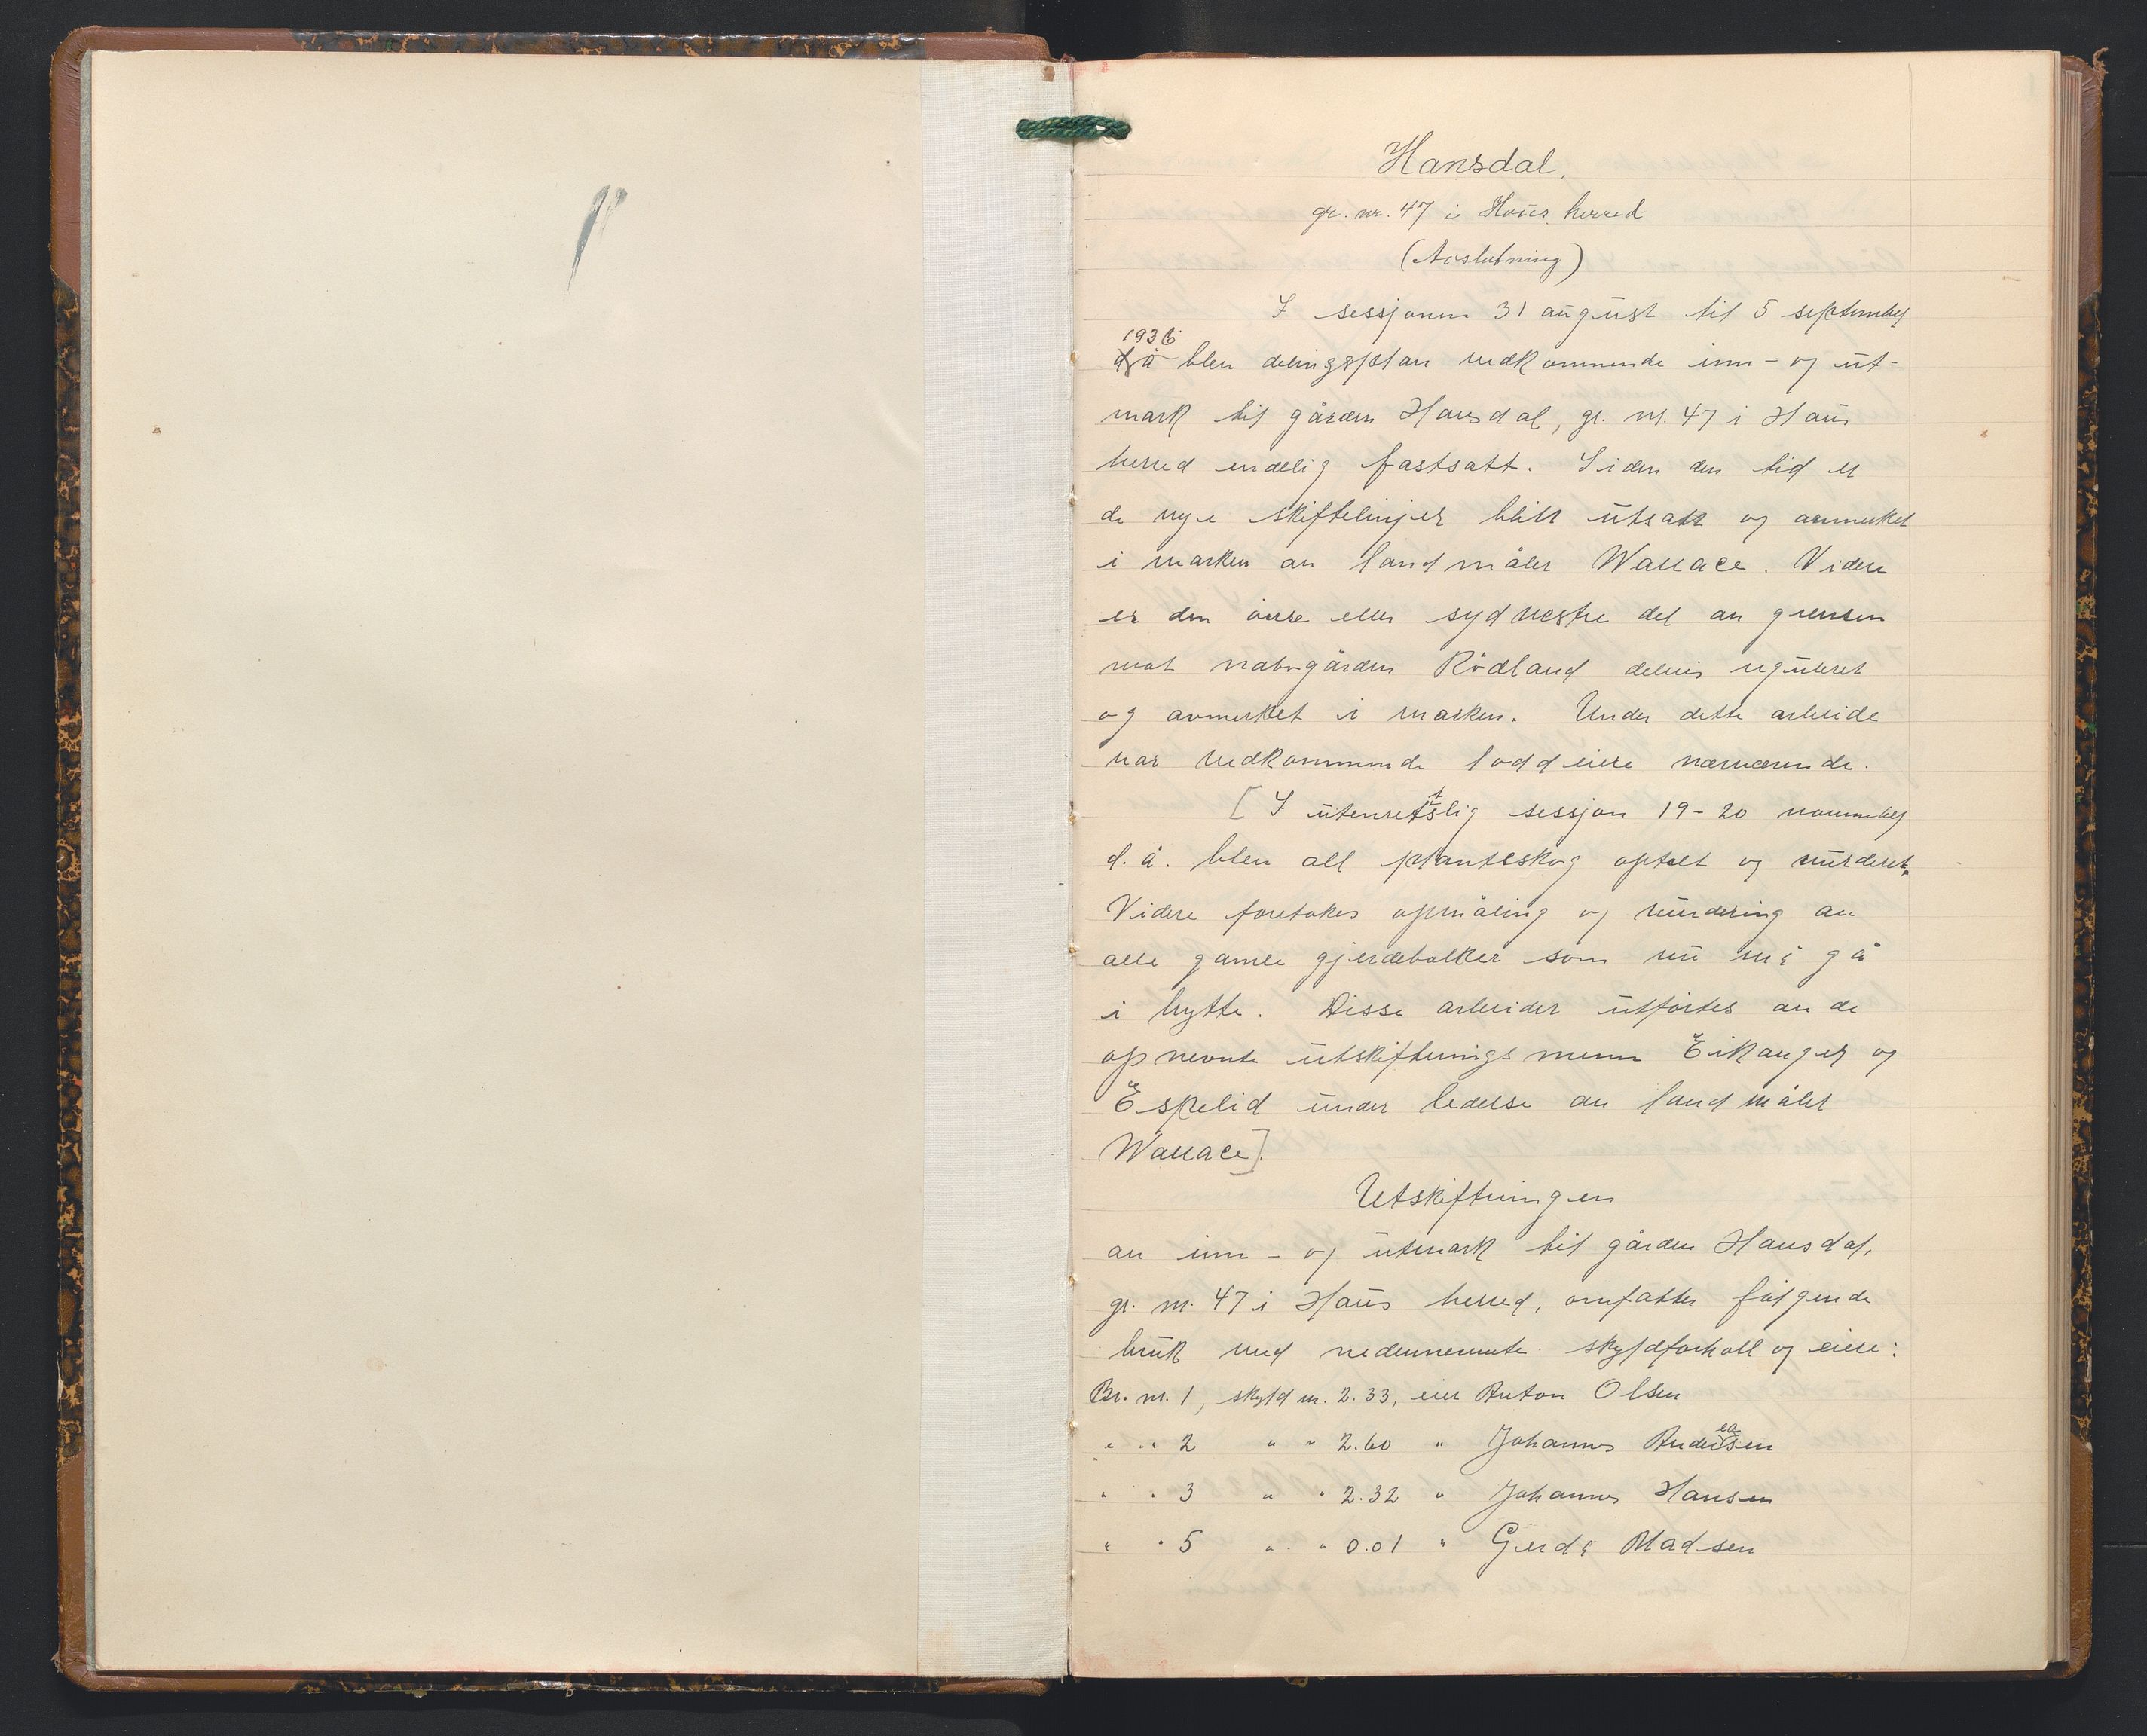 Hansdal.
gr. nr. 47 i Haus herred
(Avslutning)
I sessjonen 31 august til 5 september
1936
d.å blev delingsplan vedkommende inn- og ut-
mark til gården Hansdal, gr. nr. 47 i Haus
herred endelig fastsatt. Siden den tid er
de nye skiftelinjer blitt utsatt og avmerket
i marken av landmåler Wallace. Videre
er den øvre eller sydvestre del av grensen
mot nabogården Rödland delvis regulert
og avmerket i marken. Under dette arbeide
var vedkommende loddeiere nærværende.
[I utenrettslig sessjon 19-20 november
d. å. blev all planteskog optalt og vurdert.
Videre foretokes opmåling og vurdering av
alle gamle gjerdebolker som nu må gå
i bytte. Disse arbeider utførtes av de
opnevnte utskiftningsmenn Eikanger og
Espelid under ledelse av landmåler
Wallace].
Utskiftningen
av inn- og utmark til gården Hansdal,
gr. nr. 47 i Haus herred, omfatter følgende
bruk med nedennevnte skyldforhold og eiere:
Br. nr. 1, skyld m. 2.33, eier Anton Olsen
" " 2 " " 2.60 " Johannes Andreasen
" " 3 " " 2.32 " Johannes Hansen
" " 5 " " 0.01 " Gerda Madsen